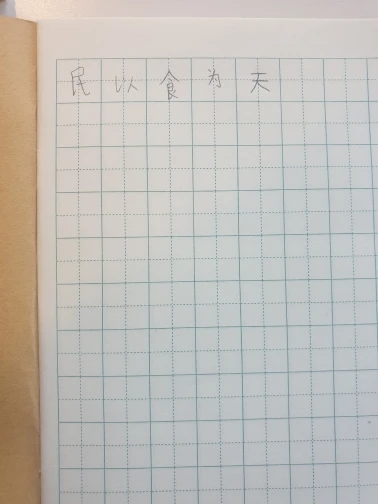 民以食为天